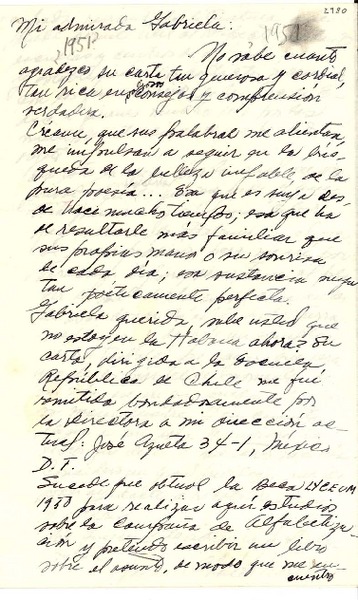 2980
1951
Mi admirada Gabriela:
1951?
No sabe cuánto
agradezco su carta tan generosa y cordial,
tan rica en sanos consejos y comprensión
verdadera.
Créame, que sus palabras me alientan,
me impulsan a seguir en la bús-
queda de la belleza inefable de la
pura poesía... Esa que es suya des-
de hace mucho tiempo; esa que ha
de resultarle más familiar que
sus propias manos o su sonrisa
de cada día; esa sustancia suya
tan poéticamente perfecta.
Gabriela querida, sabe usted que
no estoy en la Habana ahora? Su
carta, dirigida a la Escuela
República de Chile me fué
remitida bondadosamente por
la directora a mi dirección ac-
tual: José Azueta 34-1, México
D. F.
Sucede que obtuve la Beca LYCEUM
1950 para realizar aquí estudios
sobre la Campaña de Alfabetiza-
ción y pretendo escribir un libro
sobre el asunto, de modo que me en-
cuentro